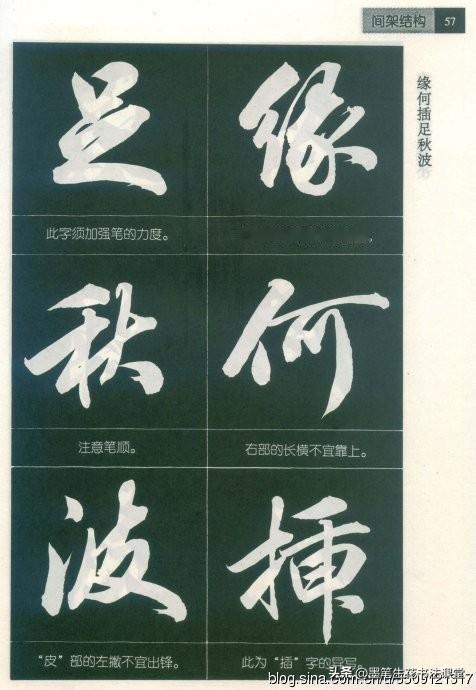 间架结构 57
缘何插足秋波
缘
何
右部的长横不宜靠上。
插
此为“插”字的异写。
足
此字须加强笔的力度。
秋
注意笔顺。
波
“皮”部的左撇不宜出锋。
头条@墨笔生花书法课堂